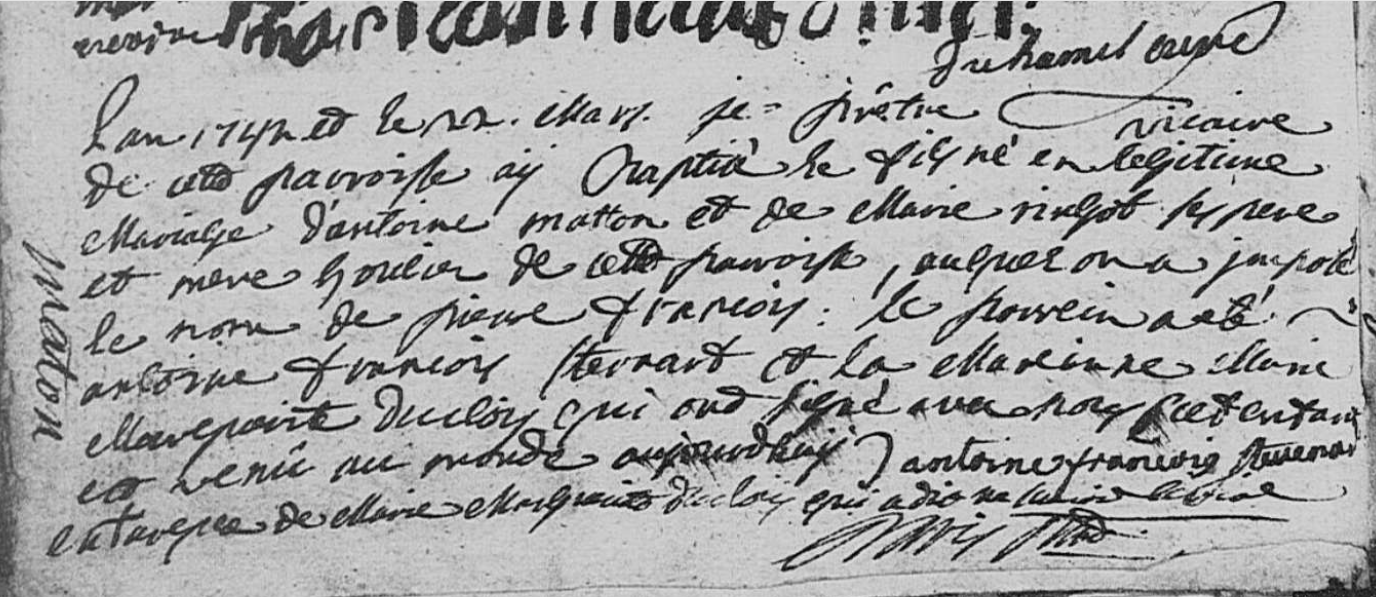 duhamel curé
L'an 1742 et le 22. Mars. je prêtre vicaire
de cette parroisse aÿ Baptisé le fils né en legitime
Mariage d'antoine matton et de Marie ringot ses pere
et mere de cette parroisse, auquel on a imposé
le nom de pierre françois. le parrein a eté
antoine françois Stevenart et la Mareinne Marie
Marguerite Duclois qui ont signé avec nous cet enfant
est venû au monde aujourdhuÿ antoine françois stevenar
de Marie Marguerite duclois qui a dit ne
maton